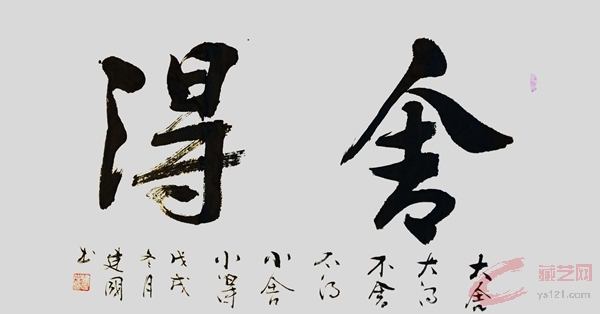 舍得
大舍
大得
不舍
不得
小舍
小得
戊戌
冬月
建國
书
藏艺网
ys121.com